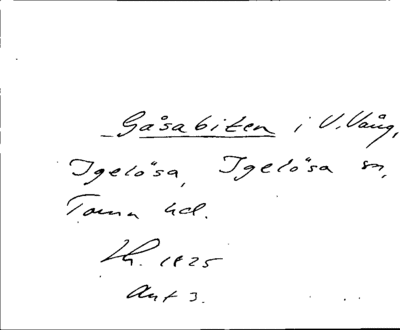 Gåsabiten i V. Vång,
Igelösa, Igelösa sn,
Torna hd.
Lh. 1825
Akt 3.